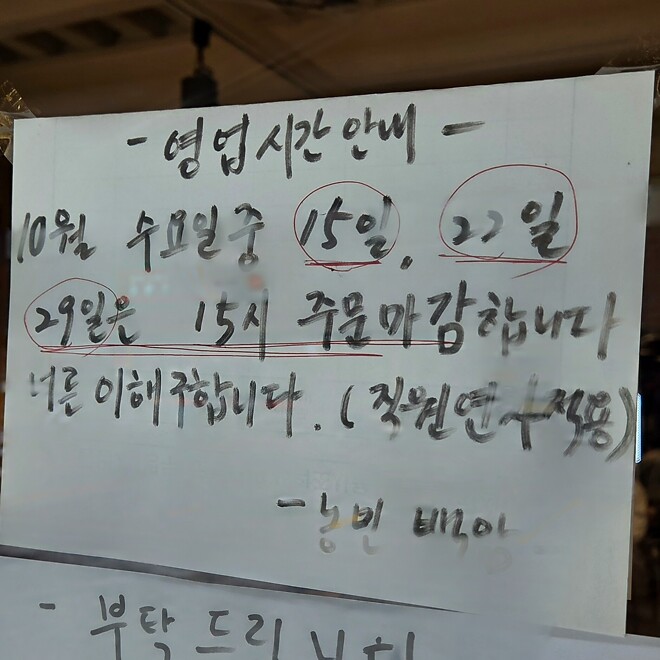 - 영업시간안내 -
10월 수요일중 15일, 22일
29일은 15시 주문마감합니다
너른이해구합니다. (직원연수적용)
- 농민백암
- 부탁드립니다